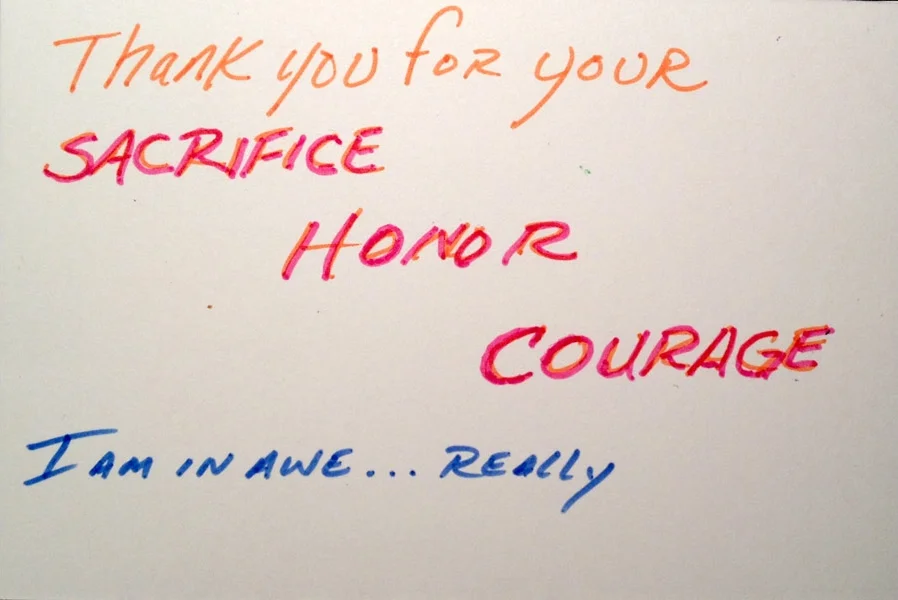 Thank you for your
SACRIFICE
HONOR
COURAGE
I AM IN AWE... REALLY